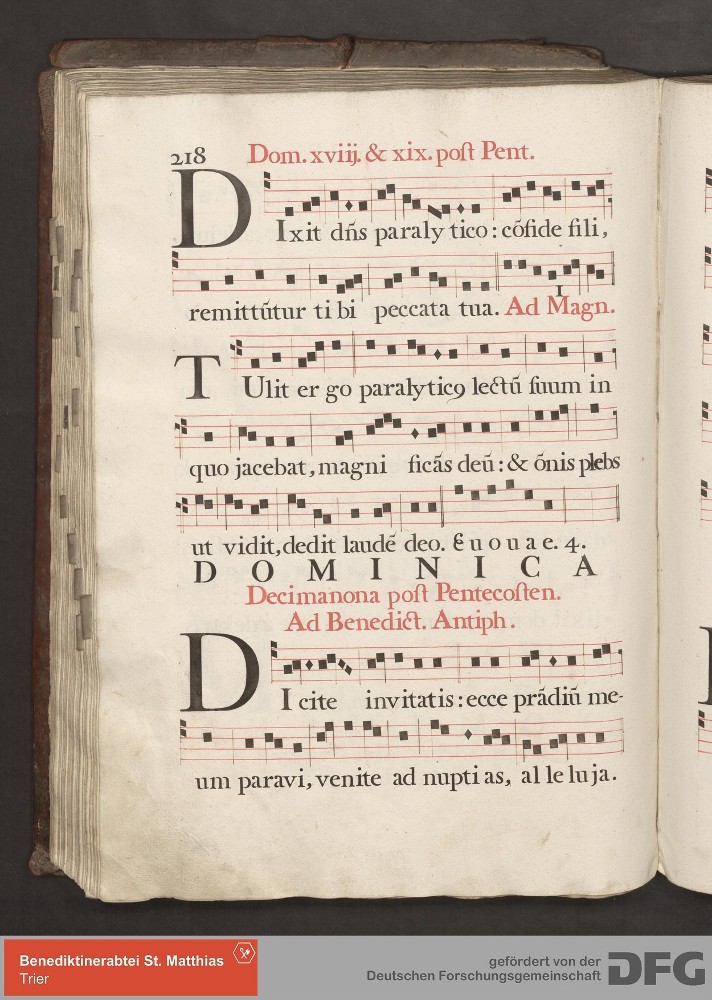 218 Dom. xviij. & xix. post Pent.
DIxit dn̄s paraly tico : cōfide fili,
remittūtur ti bi peccata tua. Ad Magn. 1
TUlit er go paralyticꝯ lectū suum in
quo jacebat, magni ficās deū : & ōnis plebs
ut vidit, dedit laudē deo. E u o u a e. 4.
DOMINICA
Decimanona post Pentecosten.
Ad Benedict. Antiph.
DIcite invitatis : ecce prādiū me-
um paravi, venite ad nupti as, al le lu ja.
Benediktinerabtei St. Matthias
Trier
gefördert von der
Deutschen Forschungsgemeinschaft DFG